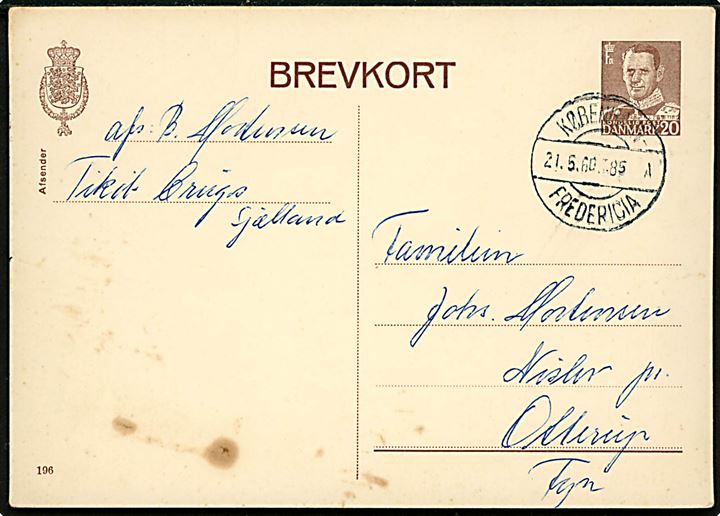 BREVKORT
Afsender
afs: B. Mortensen
Tikøb Brugs
Sjælland
DANMARK 20
KØBENH
21.5.60 T.85 A
FREDERICIA
Familien
Johs. Mortensen
Nislev pr.
Otterup
Fyn
196